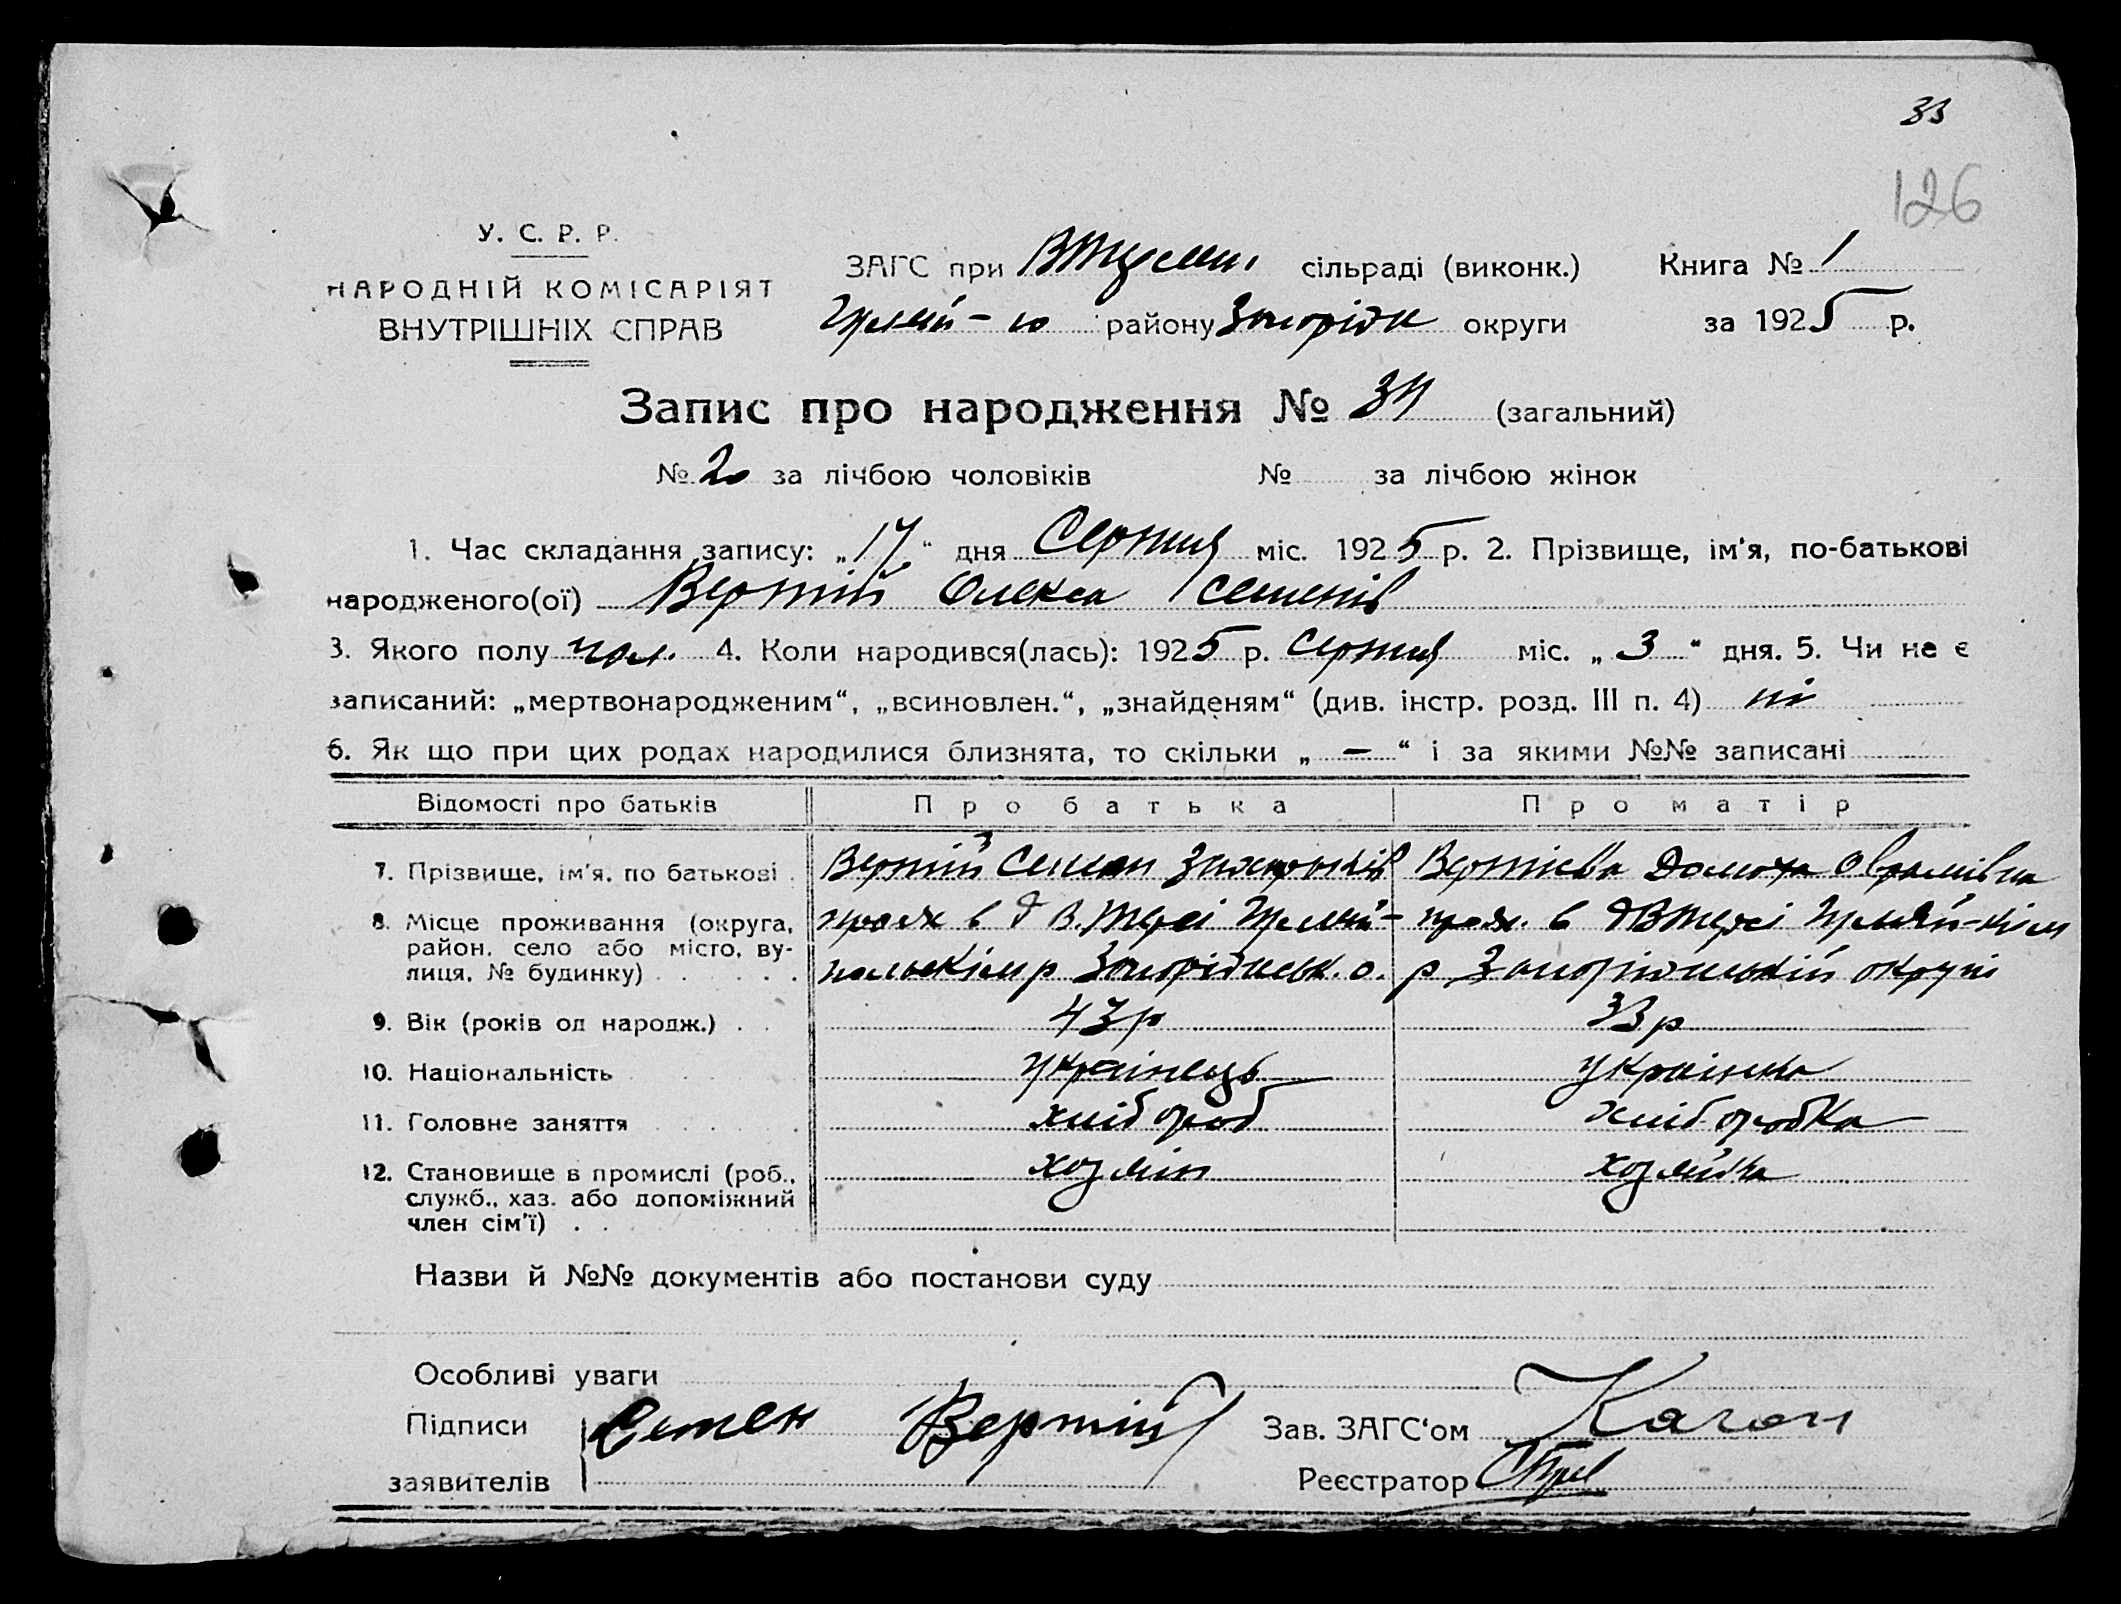 33
126
У. С. Р. Р.
НАРОДНІЙ КОМІСАРІЯТ
ВНУТРІШНІХ СПРАВ
ЗАГС при сільраді (виконк.) Книга № 1
району округи за 1925 р.
Запис про народження № (загальний)
№ 20 за лічбою чоловіків № за лічбою жінок
1. Час складання запису: „17“ дня Серпня міс. 1925 р. 2. Прізвище, ім'я, по-батькові
народженого(ої) Вертій Олекса Семенів
3. Якого полу чол. 4. Коли народився(лась): 1925 р. Серпня міс. „3“ дня. 5. Чи не є
записаний: „мертвонародженим“, „всиновлен.“, „знайденям“ (див. інстр. розд. III п. 4) ні
6. Як що при цих родах народилися близнята, то скільки „—“ і за якими №№ записані
Відомості про батьків Про батька Про матір
7. Прізвище, ім'я, по батькові Вертій Семен Захарьків Вертієва Домоха Оврамівна
8. Місце проживання (округа,
район, село або місто, ву-
лиця, № будинку)
9. Вік (років од народж.) 43 р 33 р
10. Національність українець українка
11. Головне заняття хлібороб хліборобка
12. Становище в промислі (роб., хозяін хозяйка
служб., хаз. або допоміжний
член сім'ї)
Назви й №№ документів або постанови суду
Особливі уваги
Підписи Семен Вертій Зав. ЗАГС'ом Каган
заявителів Реєстратор